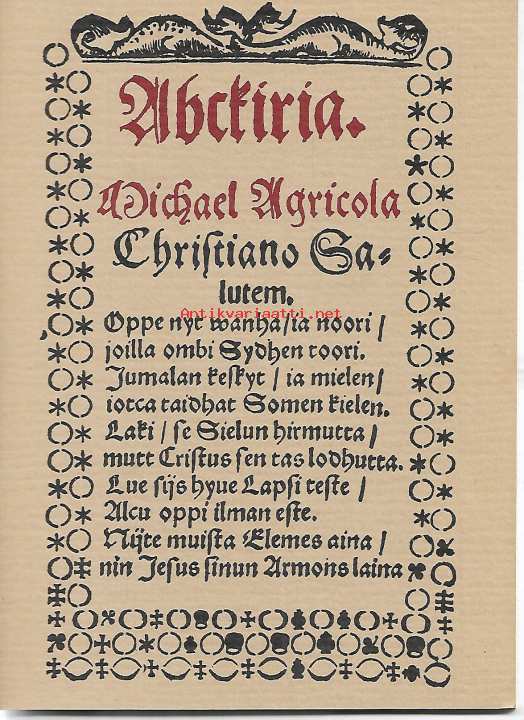 Abckiria.
Michael Agricola
Chriſtiano Sa⸗
lutem.
Antikvariaatti.net
Oppe nyt wanha/ia noori /
joilla ombi Sydhen toori.
Jumalan keſkyt / ia mielen/
iotca taidhat Somen kielen.
Laki / ſe Sielun hirmutta /
mutt Criſtus ſen tas lodhutta.
Lue ſijs hyue Lapſi teſte /
Alcu oppi ilman eſte.
Nijte muiſta Elemes aina /
nin Jeſus ſinun Armons laina